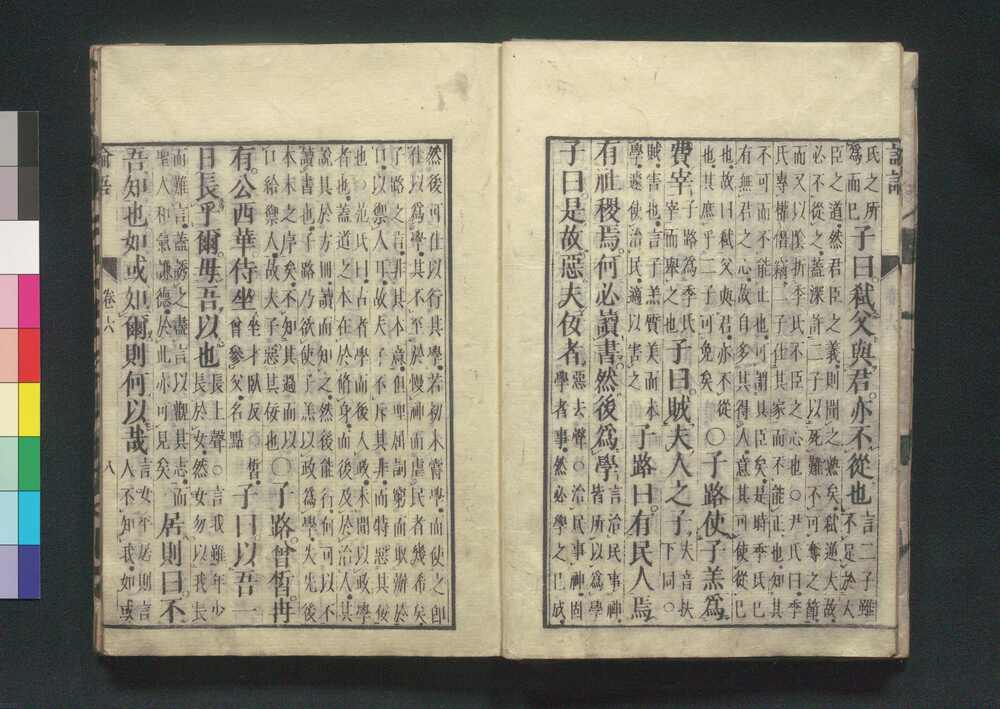 氏之所
為而已
子曰弒父與君亦不從也
言二子雖
不足於大
臣之道然君臣之義則聞之熟矣弒逆大故
必不從之蓋深許二子以死難不可奪之節
而又以陰折季氏不臣之心也○尹氏曰季
氏專權僭竊二子仕其家而不能正也知其
不可而不能止也可謂具臣矣是時季氏已
有無君之心故自多其得人意其可使從己
也故曰弒父與君亦不從
也其庶乎二子可免矣
○子路使子羔為
費宰
子路為季氏
宰而舉之也
子曰賊夫人之子
夫音扶
下同○
賊害也言子羔質美而未
學遽使治民適以害之
子路曰有民人焉
有社稷焉何必讀書然後為學
言治民事神
皆所以為學
子曰是故惡夫佞者
惡去聲○治民事神固
學者事然必學之已成
然後可仕以行其學若初未嘗學而使之即
仕以為學其不至於慢神而虐民者幾希矣
子路之言非其本意但理屈詞窮而取辦於
口以禦人耳故夫子不斥其非而特惡其佞
也○范氏曰古者學而後入政未聞以政學
者也蓋道之本在於脩身而後及於治人其
說具於方冊讀而知之然後能行何可以不
讀書也子路乃欲使子羔以政為學失先後
本末之序矣不知其過而以
口給禦人故夫子惡其佞也
○子路曾皙冉
有公西華侍坐
坐才臥反○皙
曾參父名點
子曰以吾一
日長乎爾毋吾以也
長上聲○言我雖年少
長於女然女勿以我長
而難言蓋誘之盡言以觀其志而
聖人和氣謙德於此亦可見矣
居則曰不
吾知也如或知爾則何以哉
言女平居則言
人不知我如或
論語 卷六 八